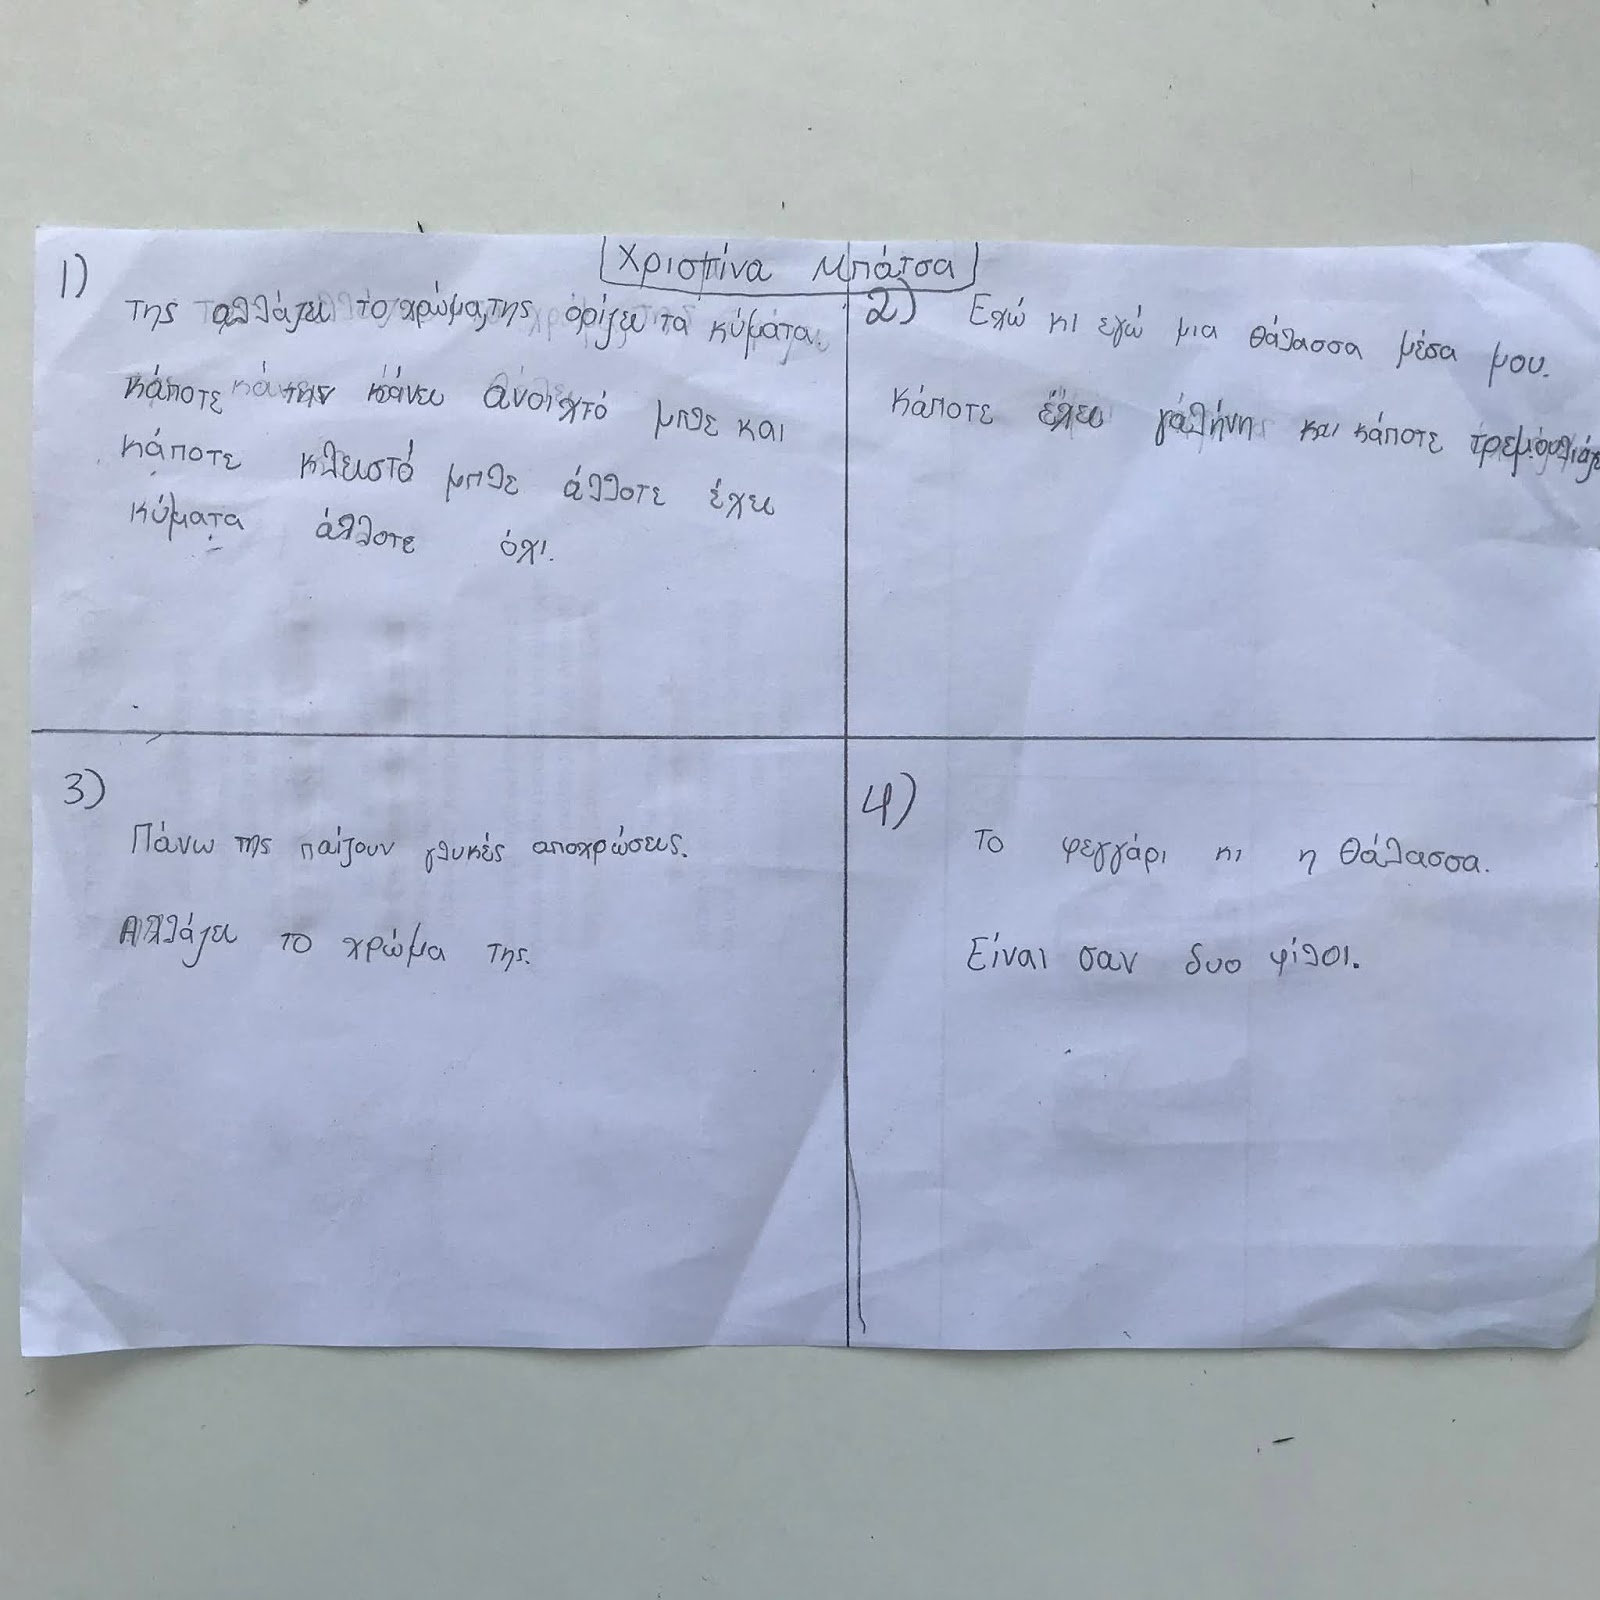 Χριστίνα Μπάτσα
1)
της αλλάζει το χρώμα, της ορίζει τα κύματα.
κάποτε την κάνει ανοιχτό μπλε και
κάποτε κλειστό μπλε άλλοτε έχει
κύματα άλλοτε όχι.
2) Εχώ κι εγώ μια θάλασσα μέσα μου.
κάποτε έχει γαλήνη και κάποτε
3)
Πάνω της παίζουν γλυκές αποχρώσεις.
Αλλάζει το χρώμα της.
4)
Το φεγγάρι κι η θάλασσα.
Είναι σαν δυο φίλοι.